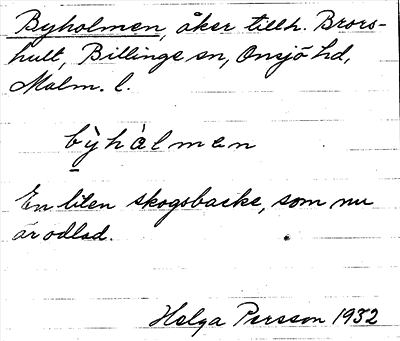 Byholmen, åker tillh. Brors-
hult, Billinge sn, Onsjö hd,
Malm. l.
bỳhàlmen
En liten skogsbacke, som nu
är odlad.
Helga Persson 1932